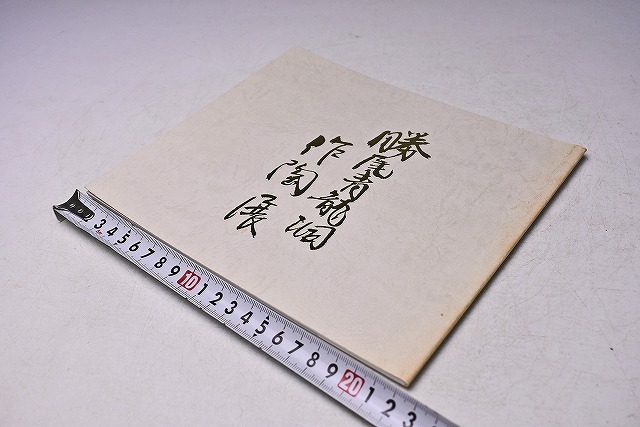 勝尾青龍洞
作陶
展
3 4 5 6 7 8 9 10 1 2 3 4 5 6 7 8 9 20 1 2 3